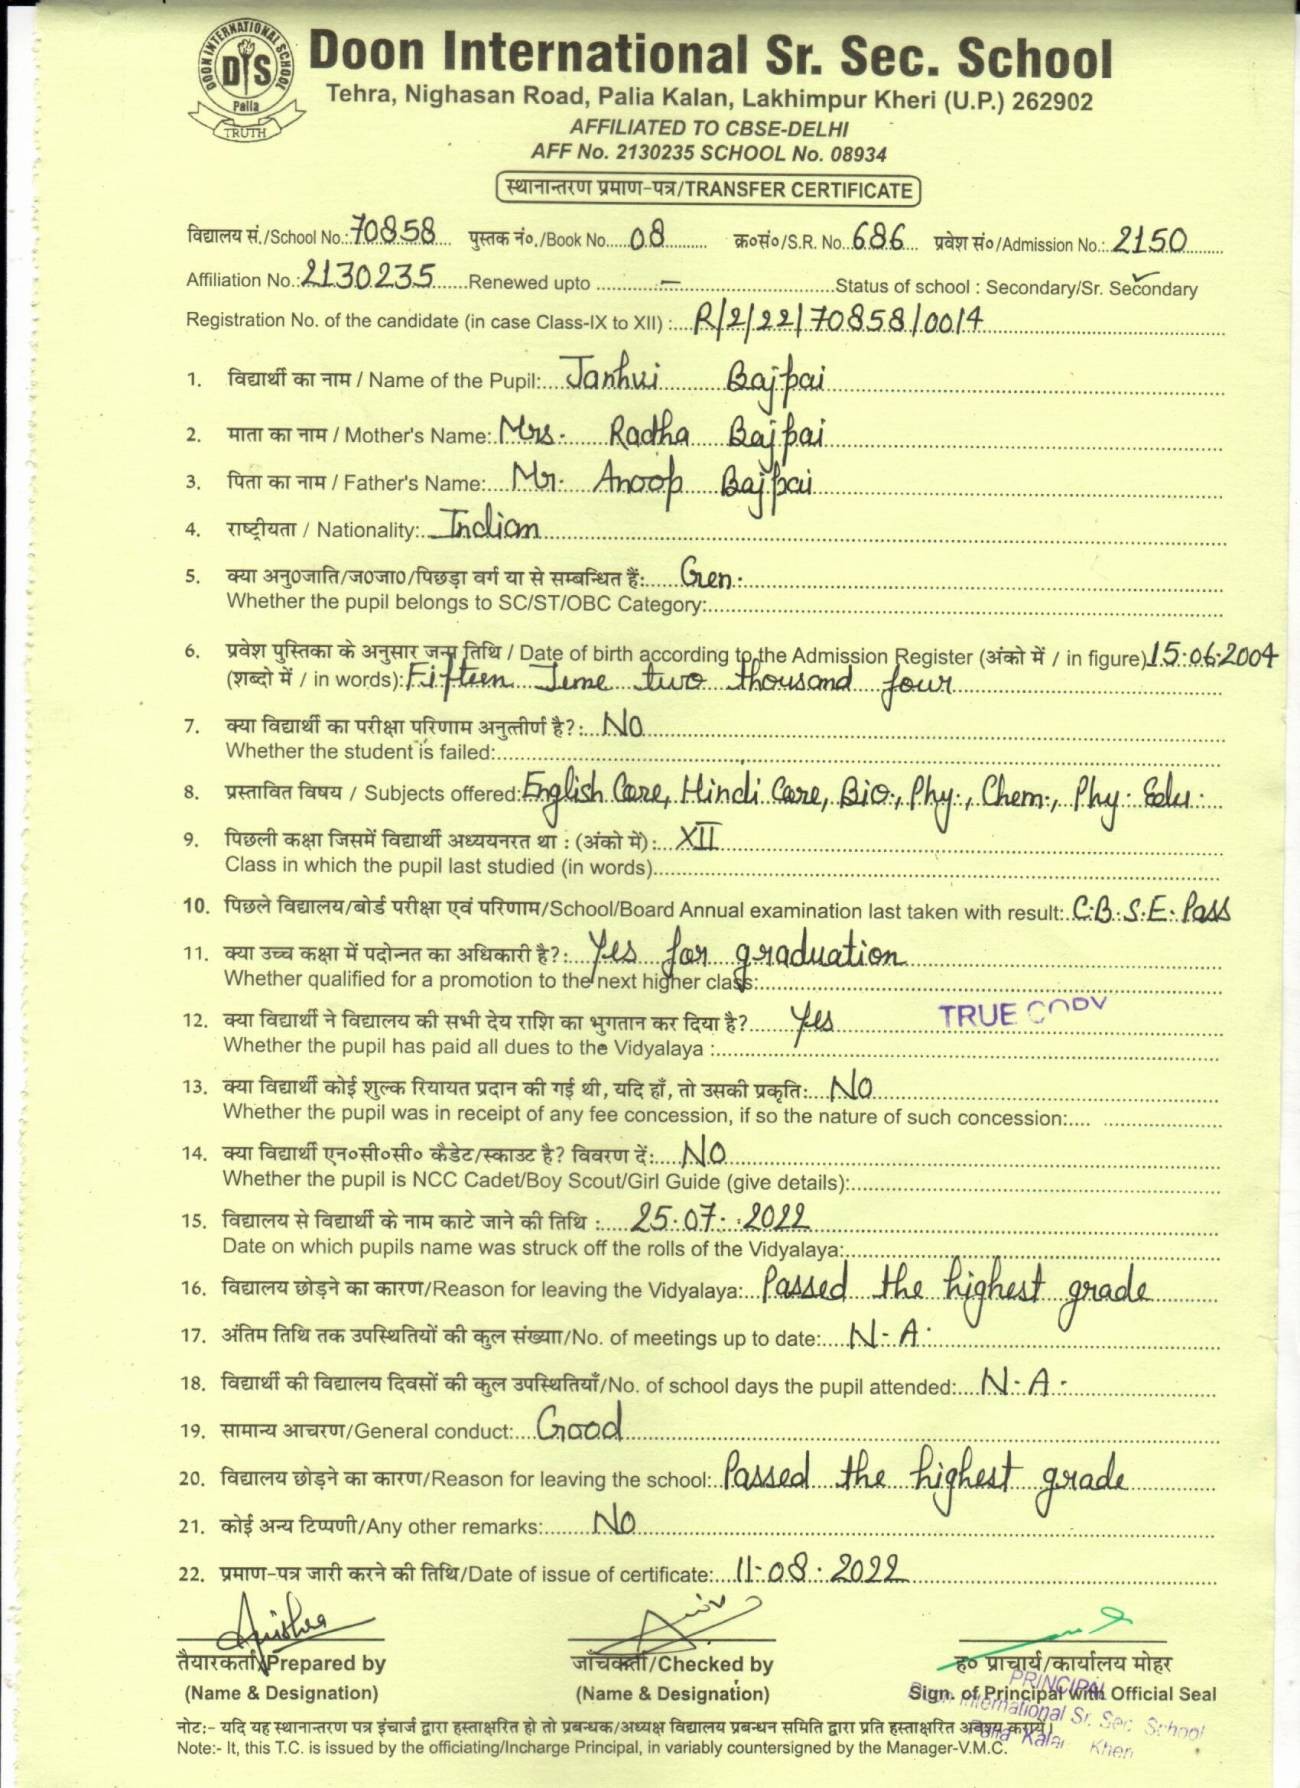 DOON INTERNATIONAL SCHOOL
DIS
Palia
TRUTH
Doon International Sr. Sec. School
Tehra, Nighasan Road, Palia Kalan, Lakhimpur Kheri (U.P.) 262902
AFFILIATED TO CBSE-DELHI
AFF No. 2130235 SCHOOL No. 08934
स्थानान्तरण प्रमाण-पत्र/TRANSFER CERTIFICATE
विद्यालय सं./School No.: 70858 पुस्तक नं०./Book No. 08 क्र०सं०/S.R. No. 686 प्रवेश सं०/Admission No.: 2150
Affiliation No.: 2130235 Renewed upto - Status of school : Secondary/Sr. Secondary
Registration No. of the candidate (in case Class-IX to XII) : R/2/22/70858/0014
1. विद्यार्थी का नाम / Name of the Pupil: Janhvi Bajpai
2. माता का नाम / Mother's Name: Mrs. Radha Bajpai
3. पिता का नाम / Father's Name: Mr. Anoop Bajpai
4. राष्ट्रीयता / Nationality: Indian
5. क्या अनु०जाति/ज०जा०/पिछड़ा वर्ग या से सम्बन्धित हैं: Gen.
Whether the pupil belongs to SC/ST/OBC Category:
6. प्रवेश पुस्तिका के अनुसार जन्म तिथि / Date of birth according to the Admission Register (अंको में / in figure) 15.06.2004
(शब्दो में / in words): Fifteen June two thousand four
7. क्या विद्यार्थी का परीक्षा परिणाम अनुत्तीर्ण है?: No
Whether the student is failed:
8. प्रस्तावित विषय / Subjects offered: English Core, Hindi Core, Bio., Phy., Chem., Phy. Edu.
9. पिछली कक्षा जिसमें विद्यार्थी अध्ययनरत था : (अंको में): XII
Class in which the pupil last studied (in words)
10. पिछले विद्यालय/बोर्ड परीक्षा एवं परिणाम/School/Board Annual examination last taken with result: C.B.S.E. Pass
11. क्या उच्च कक्षा में पदोन्नत का अधिकारी है?: Yes for graduation
Whether qualified for a promotion to the next higher class:
12. क्या विद्यार्थी ने विद्यालय की सभी देय राशि का भुगतान कर दिया है? Yes TRUE COPY
Whether the pupil has paid all dues to the Vidyalaya :
13. क्या विद्यार्थी कोई शुल्क रियायत प्रदान की गई थी, यदि हाँ, तो उसकी प्रकृति: No
Whether the pupil was in receipt of any fee concession, if so the nature of such concession:
14. क्या विद्यार्थी एन०सी०सी० कैडेट/स्काउट है? विवरण दें: No
Whether the pupil is NCC Cadet/Boy Scout/Girl Guide (give details):
15. विद्यालय से विद्यार्थी के नाम काटे जाने की तिथि : 25.07.2022
Date on which pupils name was struck off the rolls of the Vidyalaya:
16. विद्यालय छोड़ने का कारण/Reason for leaving the Vidyalaya: Passed the highest grade
17. अंतिम तिथि तक उपस्थितियों की कुल संख्या/No. of meetings up to date: N.A.
18. विद्यार्थी की विद्यालय दिवसों की कुल उपस्थितियाँ/No. of school days the pupil attended: N.A.
19. सामान्य आचरण/General conduct: Good
20. विद्यालय छोड़ने का कारण/Reason for leaving the school: Passed the highest grade
21. कोई अन्य टिप्पणी/Any other remarks: No
22. प्रमाण-पत्र जारी करने की तिथि/Date of issue of certificate: 11.08.2022
तैयारकर्ता/Prepared by जाँचकर्ता/Checked by ह० प्राचार्य/कार्यालय मोहर
(Name & Designation) (Name & Designation) Sign. of Principal with Official Seal
PRINCIPAL
Doon International Sr. Sec. School
Palia Kalan Kheri
नोट:- यदि यह स्थानान्तरण पत्र इंचार्ज द्वारा हस्ताक्षरित हो तो प्रबन्धक/अध्यक्ष विद्यालय प्रबन्धन समिति द्वारा प्रति हस्ताक्षरित अवश्य करायें।
Note:- It, this T.C. is issued by the officiating/Incharge Principal, in variably countersigned by the Manager-V.M.C.